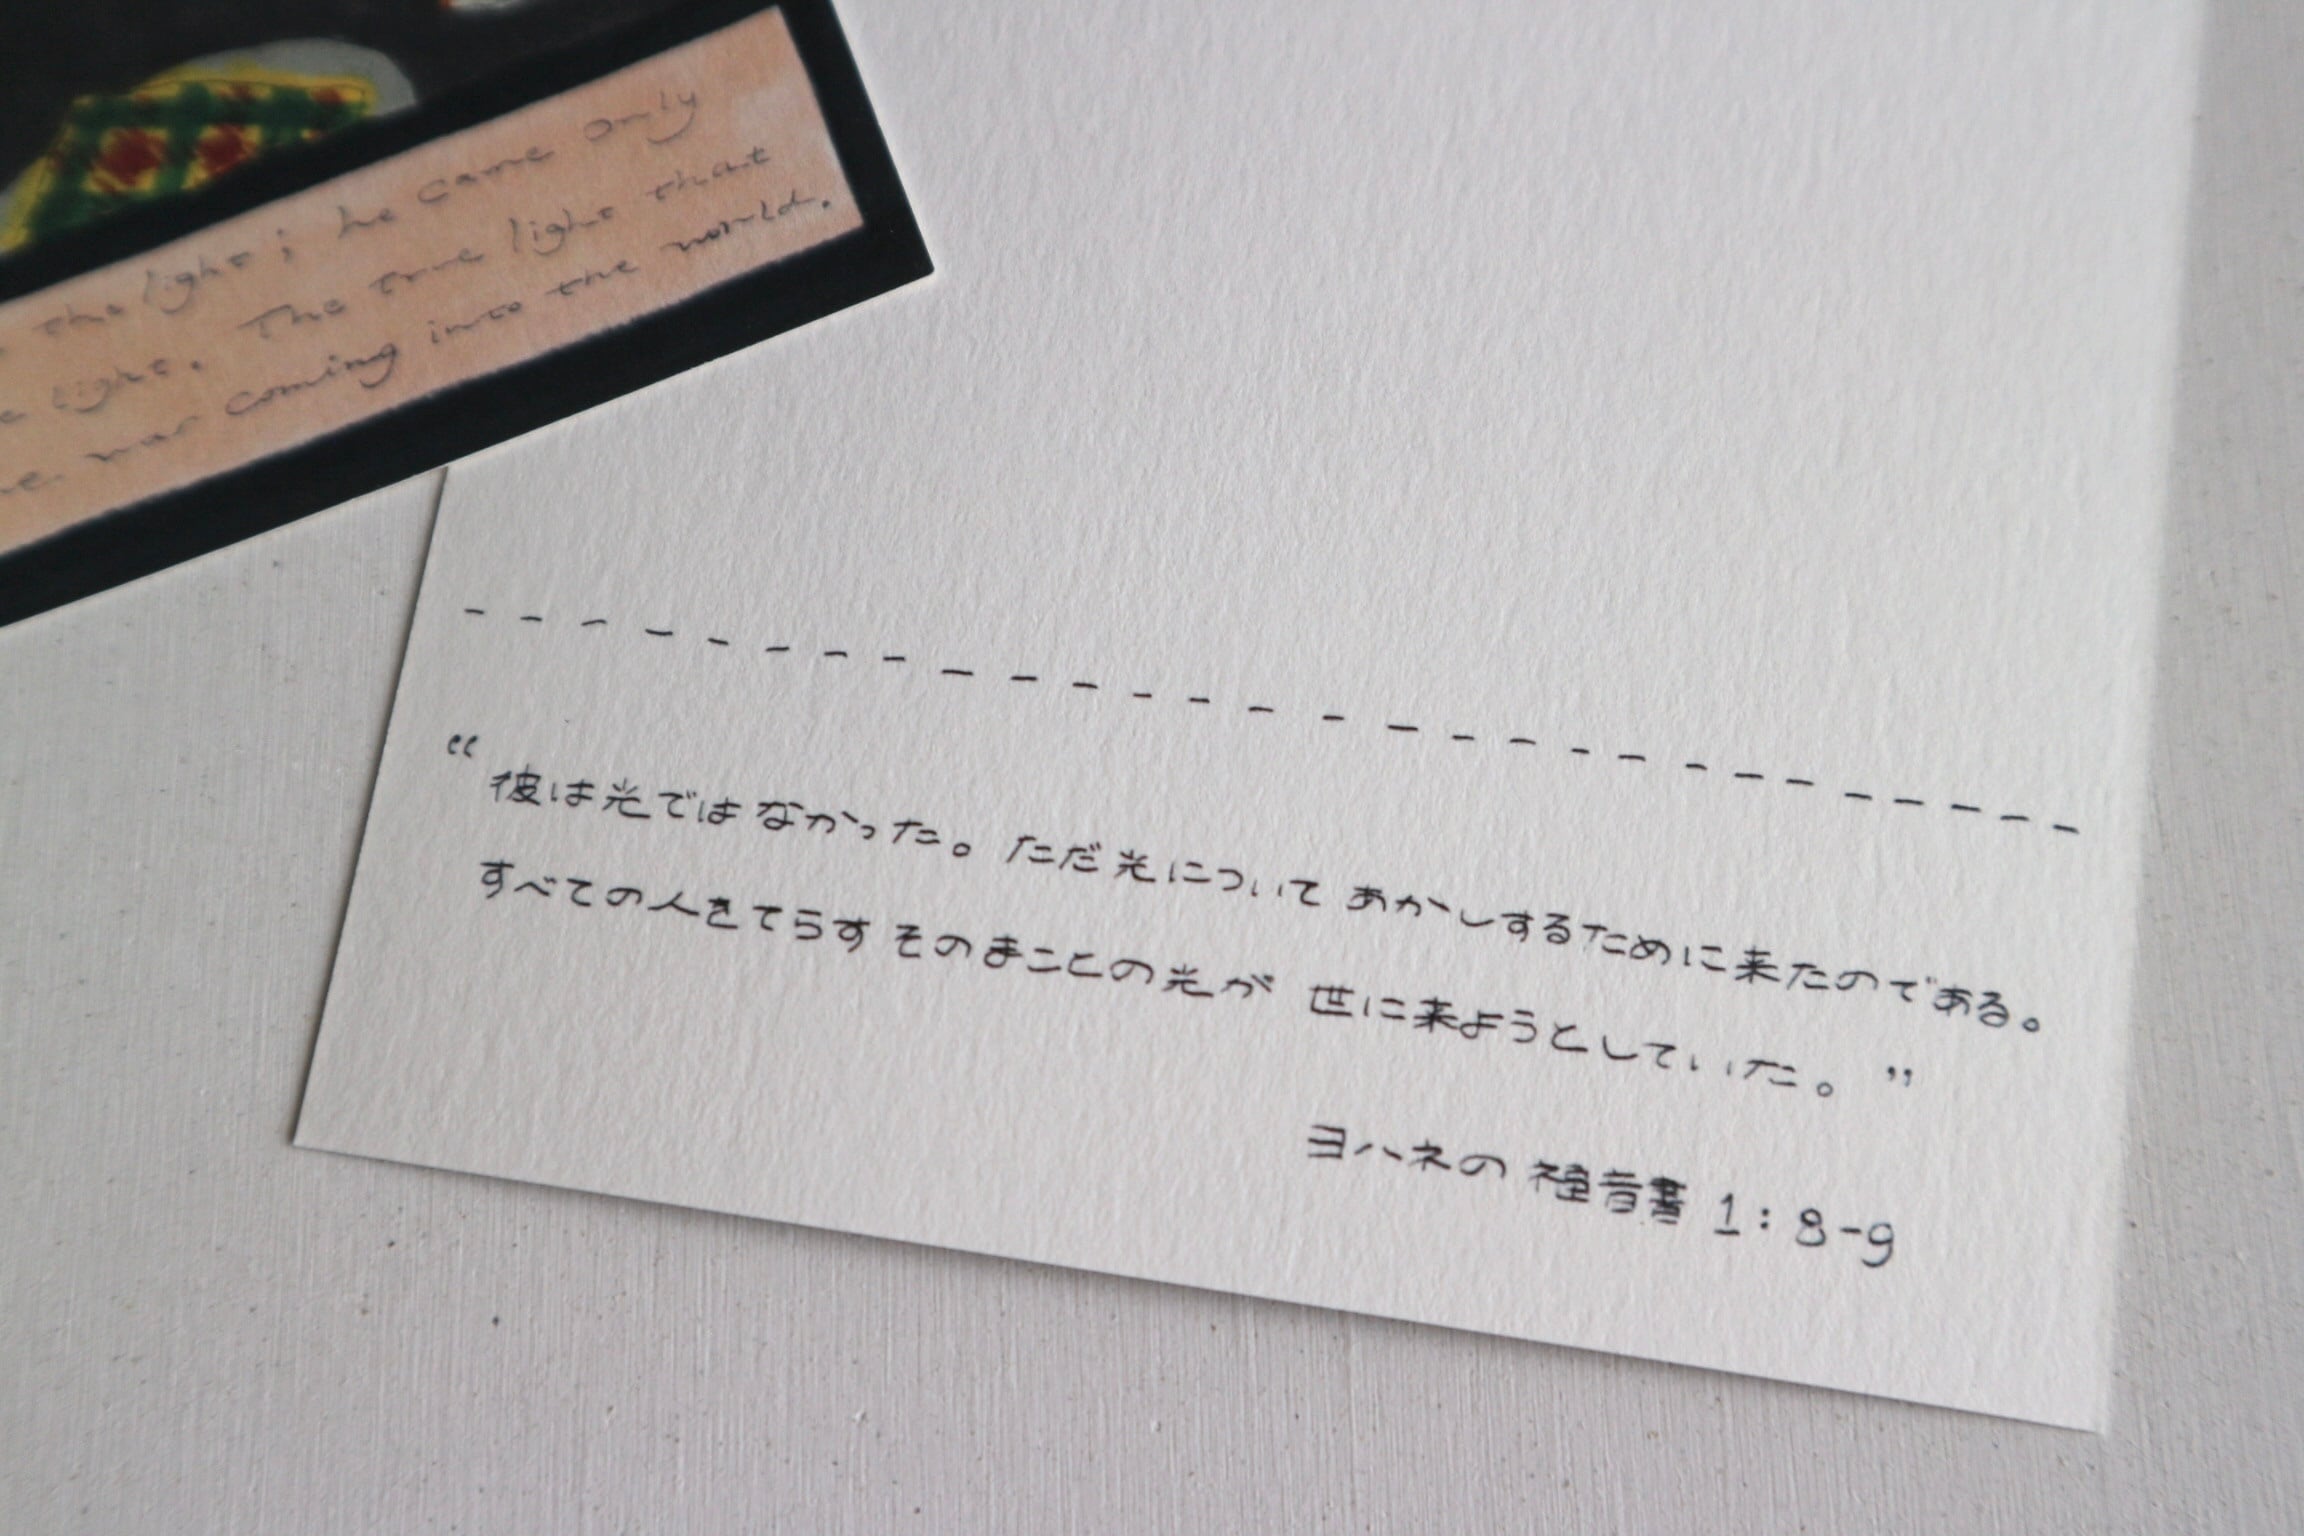 the light; he came only
light. The true light that
was coming into the world.
“彼は光ではなかった。ただ光について あかしするために来たのである。
すべての人をてらす そのまことの光が 世に来ようとしていた。”
ヨハネの 福音書 1:8-9